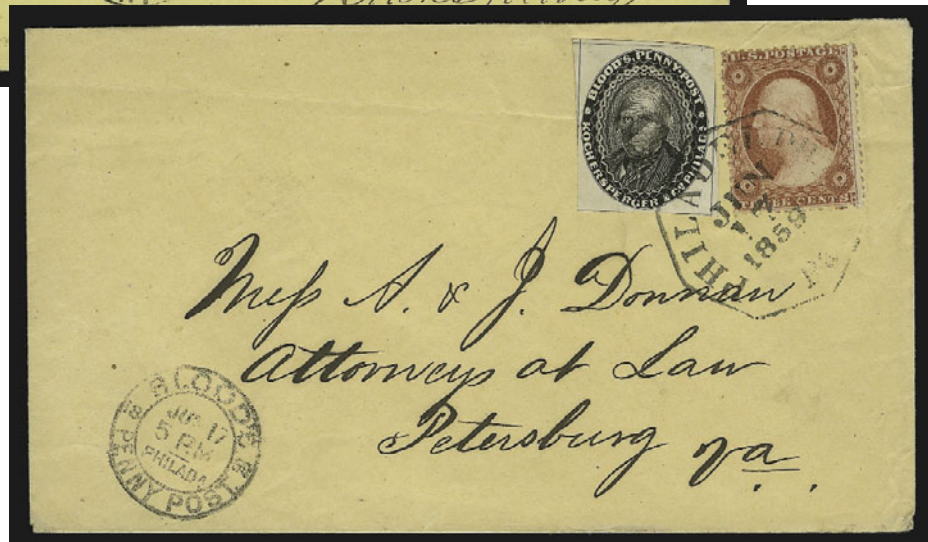 BLOOD'S PENNY-POST
KOCHERSPERGER & CO. PHILADA.
U.S. POSTAGE
THREE CENTS
PHILADELPHIA Pa
JUN
17
1859
Mess A. & J. Donnan
Attorneys at Law
Petersburg Va.
BLOOD'S
JUN 17
5 PM
PHILADA
PENNY POST